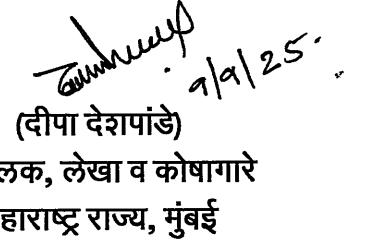 9/9/25.
(दीपा देशपांडे)
लक, लेखा व कोषागारे
हाराष्ट्र राज्य, मुंबई